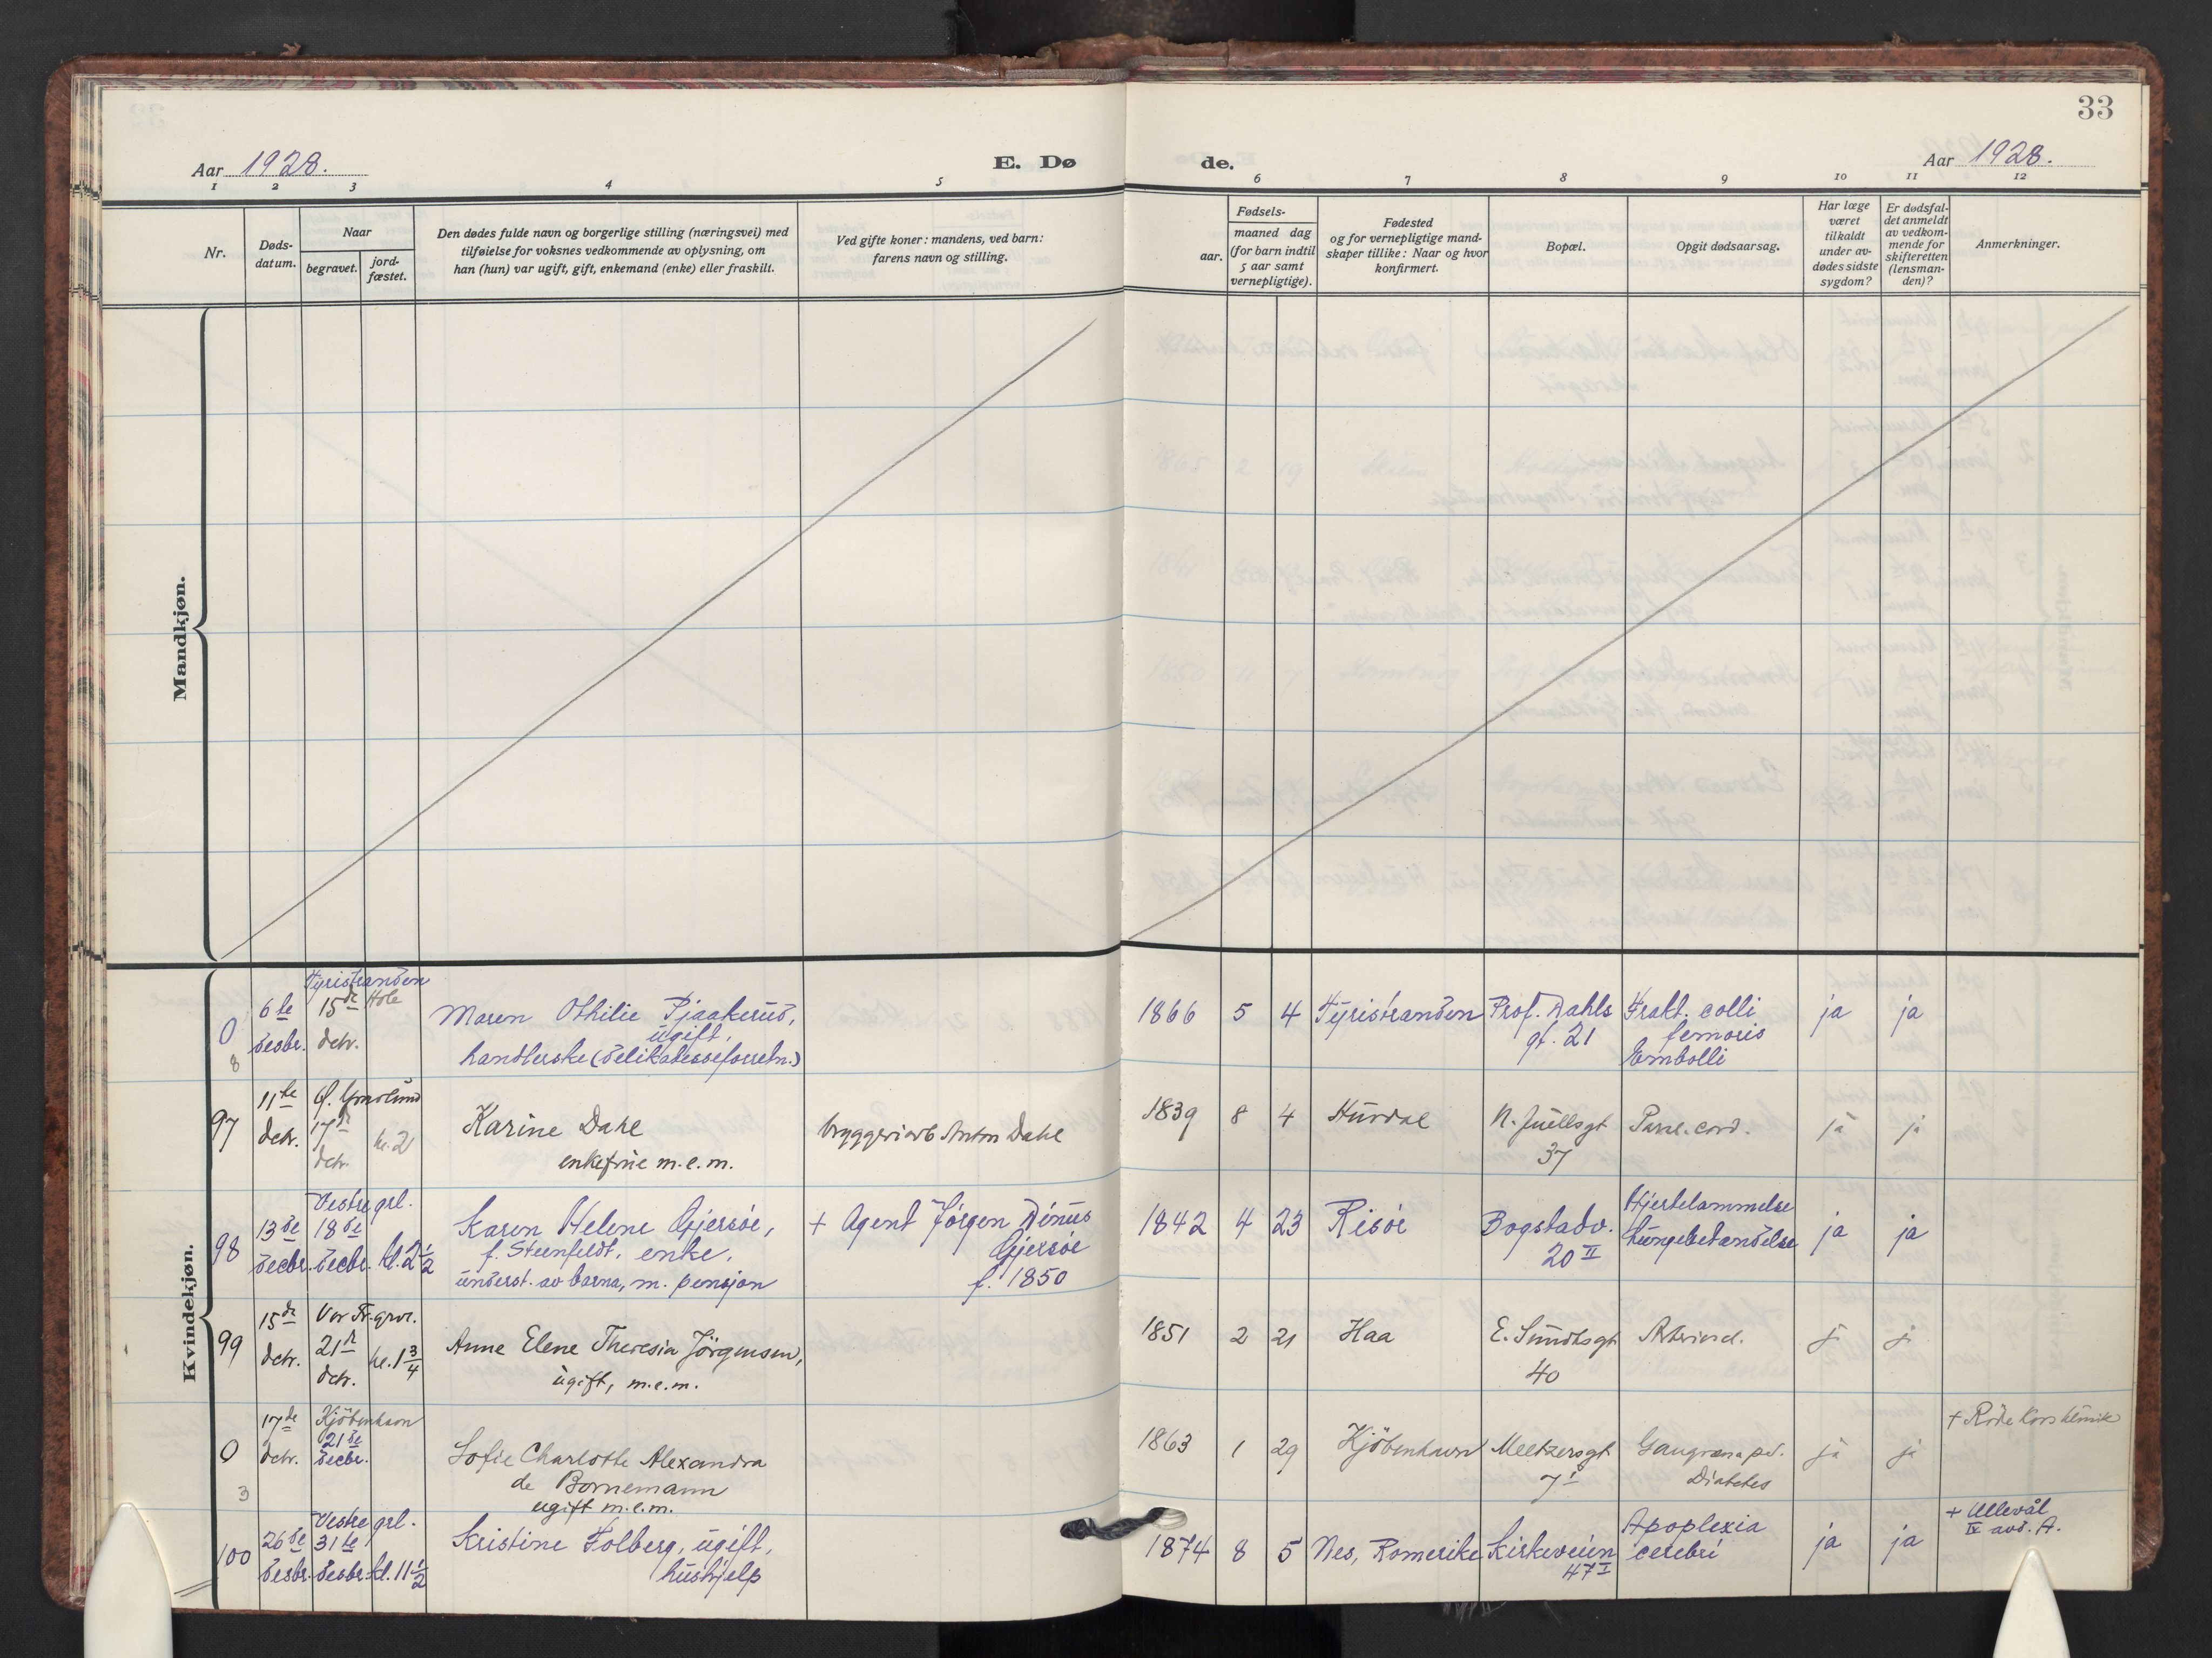 33
Aar 1928.
E. Dø
de.
Aar 1928.
1 2 3 4 5 6 7 8 9 10 11 12
Nr.
Døds-
datum.
Naar
begravet.
jord-
fæstet.
Den dødes fulde navn og borgerlige stilling (næringsvei) med
tilføielse for voksnes vedkommende av oplysning, om
han (hun) var ugift, gift, enkemand (enke) eller fraskilt.
Ved gifte koner: mandens, ved barn:
farens navn og stilling.
Fødsels-
aar.
maaned dag
(for barn indtil
5 aar samt
vernepligtige).
Fødested
og for vernepligtige mand-
skaper tillike: Naar og hvor
konfirmert.
Bopæl.
Opgit dødsaarsag.
Har læge
været
tilkaldt
under av-
dødes sidste
sygdom?
Er dødsfal-
det anmeldt
av vedkom-
mende for
skifteretten
(lensman-
den)?
Anmerkninger.
Mandkjøn.
Kvindekjøn.
0
8
6te
desbr.
Tyristranden
15de Hole
debr.
Maren Othilie Pjaakerud,
ugift,
handlerske (delikatesseforretn.)
1866 5 4
Tyristranden
Prof. Dahls
gt. 21
Frakt. colli
femoris
Embolli
ja ja
97
11te
debr.
17de
debr.
kl. 2
Karine Dahl
enkefrue m.e.m.
bryggeriarb Anton Dahl
1839 8 4
Hurdal
N. Juellsgt
37
ja ja
98
13de
decbr.
Vestre grl.
18de
decbr.
kl. 2 1/2
Karen Helene Gjersøe,
f. Steenfeldt, enke,
underst. av barna, m. pensjon
+ Agent Jørgen Dinus
Gjersøe
f. 1850
1842 4 23
Risør
Bogstadv.
20 II
Hjertelammelse
Lungebetændelse
ja ja
99
15de
debr.
Vor Fr. grvl.
21de
debr.
kl. 1 3/4
Anne Elene Theresia Jörgensen,
ugift, m.e.m.
1851 2 21
Haa
E. Sundtsgt
40
ja ja
0
3
17de
debr.
Kjöbenhavn
21de
decbr.
Sofie Charlotte Alexandra
de Bornemann
ugift m.e.m.
1863 1 29
Kjöbenhavn
Meltzersgt
7 I
Gangræna pd.
Diabetes
ja ja
+ Røde Kors klinik
100
26de
desbr.
Vestre grl.
31te
desbr.
kl. 11 1/2
Kristine Folberg, ugift,
hushjelp
1874 8 5
Nes, Romerike
Kirkeveien
47 I
Apoplexia
cerebri
ja ja
+ Ullevål
IV avd. A.